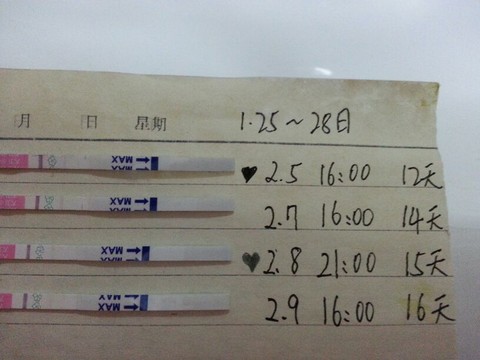 月 日 星期 1.25～28日
MAX ♥ 2.5 16:00 12天
MAX 2.7 16:00 14天
MAX ♥ 2.8 21:00 15天
MAX 2.9 16:00 16天